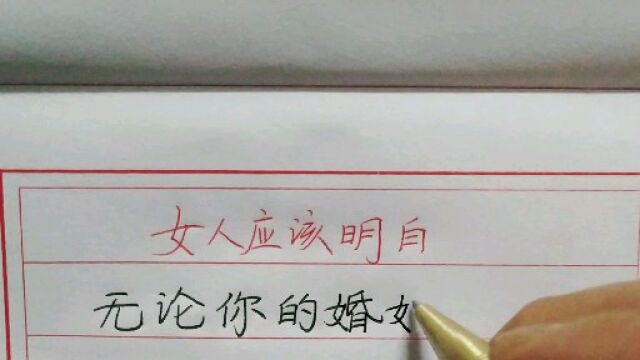 女人应该明自
无论你的婚